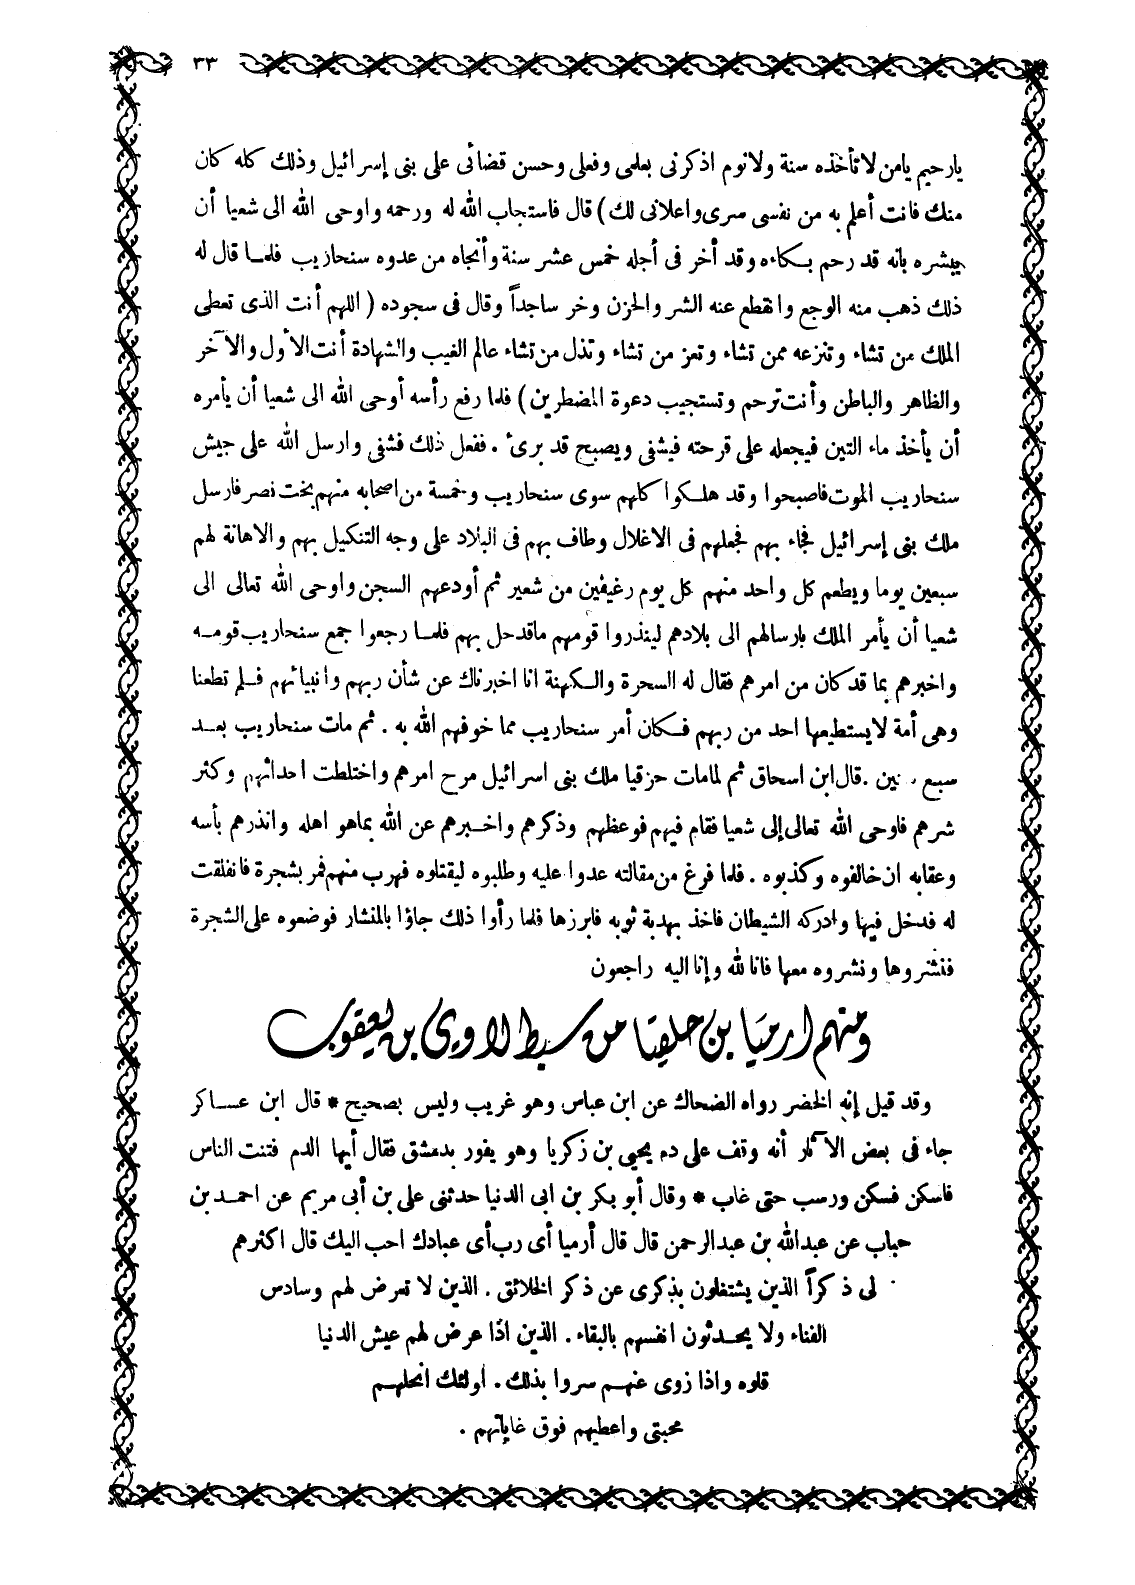 ٣٣
يارحيم يامن لا تأخذه سنة ولا نوم اذكرنى بعلمى وفعلى وحسن قضائى على بنى إسرائيل وذلك كله كان
منك فانت أعلم به من نفسى سرى واعلانى لك) قال فاستجاب الله له ورحمه واوحى الله الى شعيا أن
يبشره بانه قد رحم بكاءه وقد أخر فى أجله خمس عشر سنة وأنجاه من عدوه سنحازيب فلما قال له
ذلك ذهب منه الوجع وانقطع عنه الشر والحزن وخر ساجداً وقال فى سجوده ( اللهم أنت الذى تعطى
الملك من تشاء وتنزعه ممن تشاء وتعز من تشاء وتذل من تشاء عالم الغيب والشهادة أنت الأول والآخر
والظاهر والباطن وأنت ترحم وتستجيب دعوة المضطرين) فلما رفع رأسه أوحى الله الى شعيا أن يأمره
أن يأخذ ماء التين فيجعله على قرحته فيشفى ويصبح قد برىء . ففعل ذلك فشفى وارسل الله على جيش
سنحاريب الموت فاصبحوا وقد هلكوا كلهم سوى سنحاريب وخمسة من اصحابه منهم بخت نصر فارسل
ملك بنى إسرائيل فجاء بهم فجعلهم فى الاغلال وطاف بهم فى البلاد على وجه التنكيل بهم والاهانة لهم
سبعين يوما ويطعم كل واحد منهم كل يوم رغيفين من شعير ثم أودعهم السجن واوحى الله تعالى الى
شعيا أن يأمر الملك بارسالهم الى بلادهم لينذروا قومهم ماقدحل بهم فلما رجعوا جمع سنحاريب قومه
واخبرهم بما قد كان من امرهم فقال له السحرة والكهنة انا اخبرناك عن شأن ربهم وانبيائهم فلم تطعنا
وهى أمة لا يستطيعها احد من ربهم فكان أمر سنحاريب مما خوفهم الله به . ثم مات سنحاريب بعد
سبع سنين . قال ابن اسحاق ثم لمامات حزقيا ملك بنى اسرائيل مرج امرهم واختلطت احداثهم وكثر
شرهم فاوحى الله تعالى إلى شعيا فقام فيهم فوعظهم وذكرهم واخبرهم عن الله بماهو اهله وانذرهم بأسه
وعقابه ان خالفوه وكذبوه . فلما فرغ من مقالته عدوا عليه وطلبوه ليقتلوه فهرب منهم فمر بشجرة فانفلقت
له فدخل فيها وادركه الشيطان فاخذ بهدبة ثوبه فابرزها فلما رأوا ذلك جاؤا بالمنشار فوضعوه على الشجرة
فنشروها ونشروه معها فانا لله وإنا اليه راجعون
ومنهم ارميا بن حلقيا من سبط لاوي بن يعقوب
وقد قيل إنه الخضر رواه الضحاك عن ابن عباس وهو غريب وليس بصحيح * قال ابن عساكر
جاء فى بعض الآثار أنه وقف على دم يحيى بن زكريا وهو يفور بدمشق فقال أيها الدم فتنت الناس
فاسكن فسكن ورسب حتى غاب * وقال أبو بكر بن ابى الدنيا حدثنى على بن أبى مريم عن احمد بن
حباب عن عبدالله بن عبدالرحمن قال قال أرميا أى رب أى عبادك احب اليك قال اكثرهم
لى ذكراً الذين يشتغلون بذكرى عن ذكر الخلائق . الذين لا تعرض لهم وسادس
الفناء ولا يحدثون انفسهم بالبقاء . الذين اذا عرض لهم عيش الدنيا
قلوه واذا زوى عنهم سروا بذلك . اولئك انحلهم
محبتى واعطيهم فوق غاياتهم .